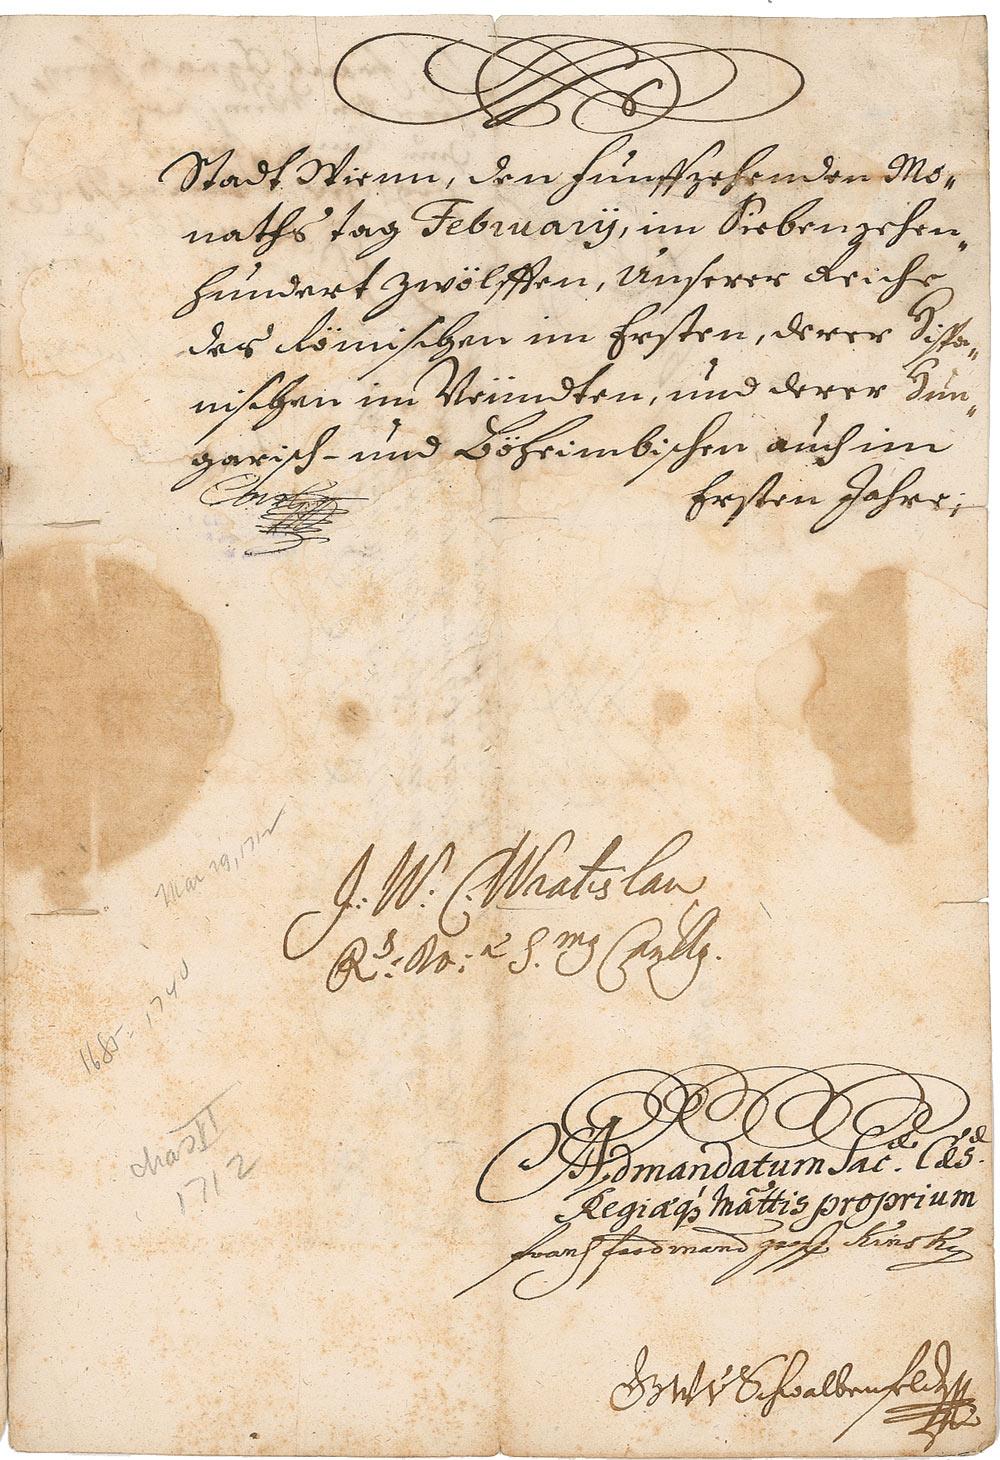 Stadt Wienn, den funffzehenden Mo„
naths tag February, im Siebenzehen„
hundert zwölfften, Unserer Reiche
des Römischen im Ersten, derer Hispa„
nischen im Neündten, und derer Hun„
garisch- und Böheimbischen auch im
Ersten Jahre;
Carl
Mar 29, 1712
J. W. C. Wratislau
Rs: Bo:
1685-1740
Chas VI
1712
Ad mandatum Sac.ae Caes.
Regiaeq; Mattis proprium
Franz Ferdinand graff Kinsky
GWv Schwalbenfeldt